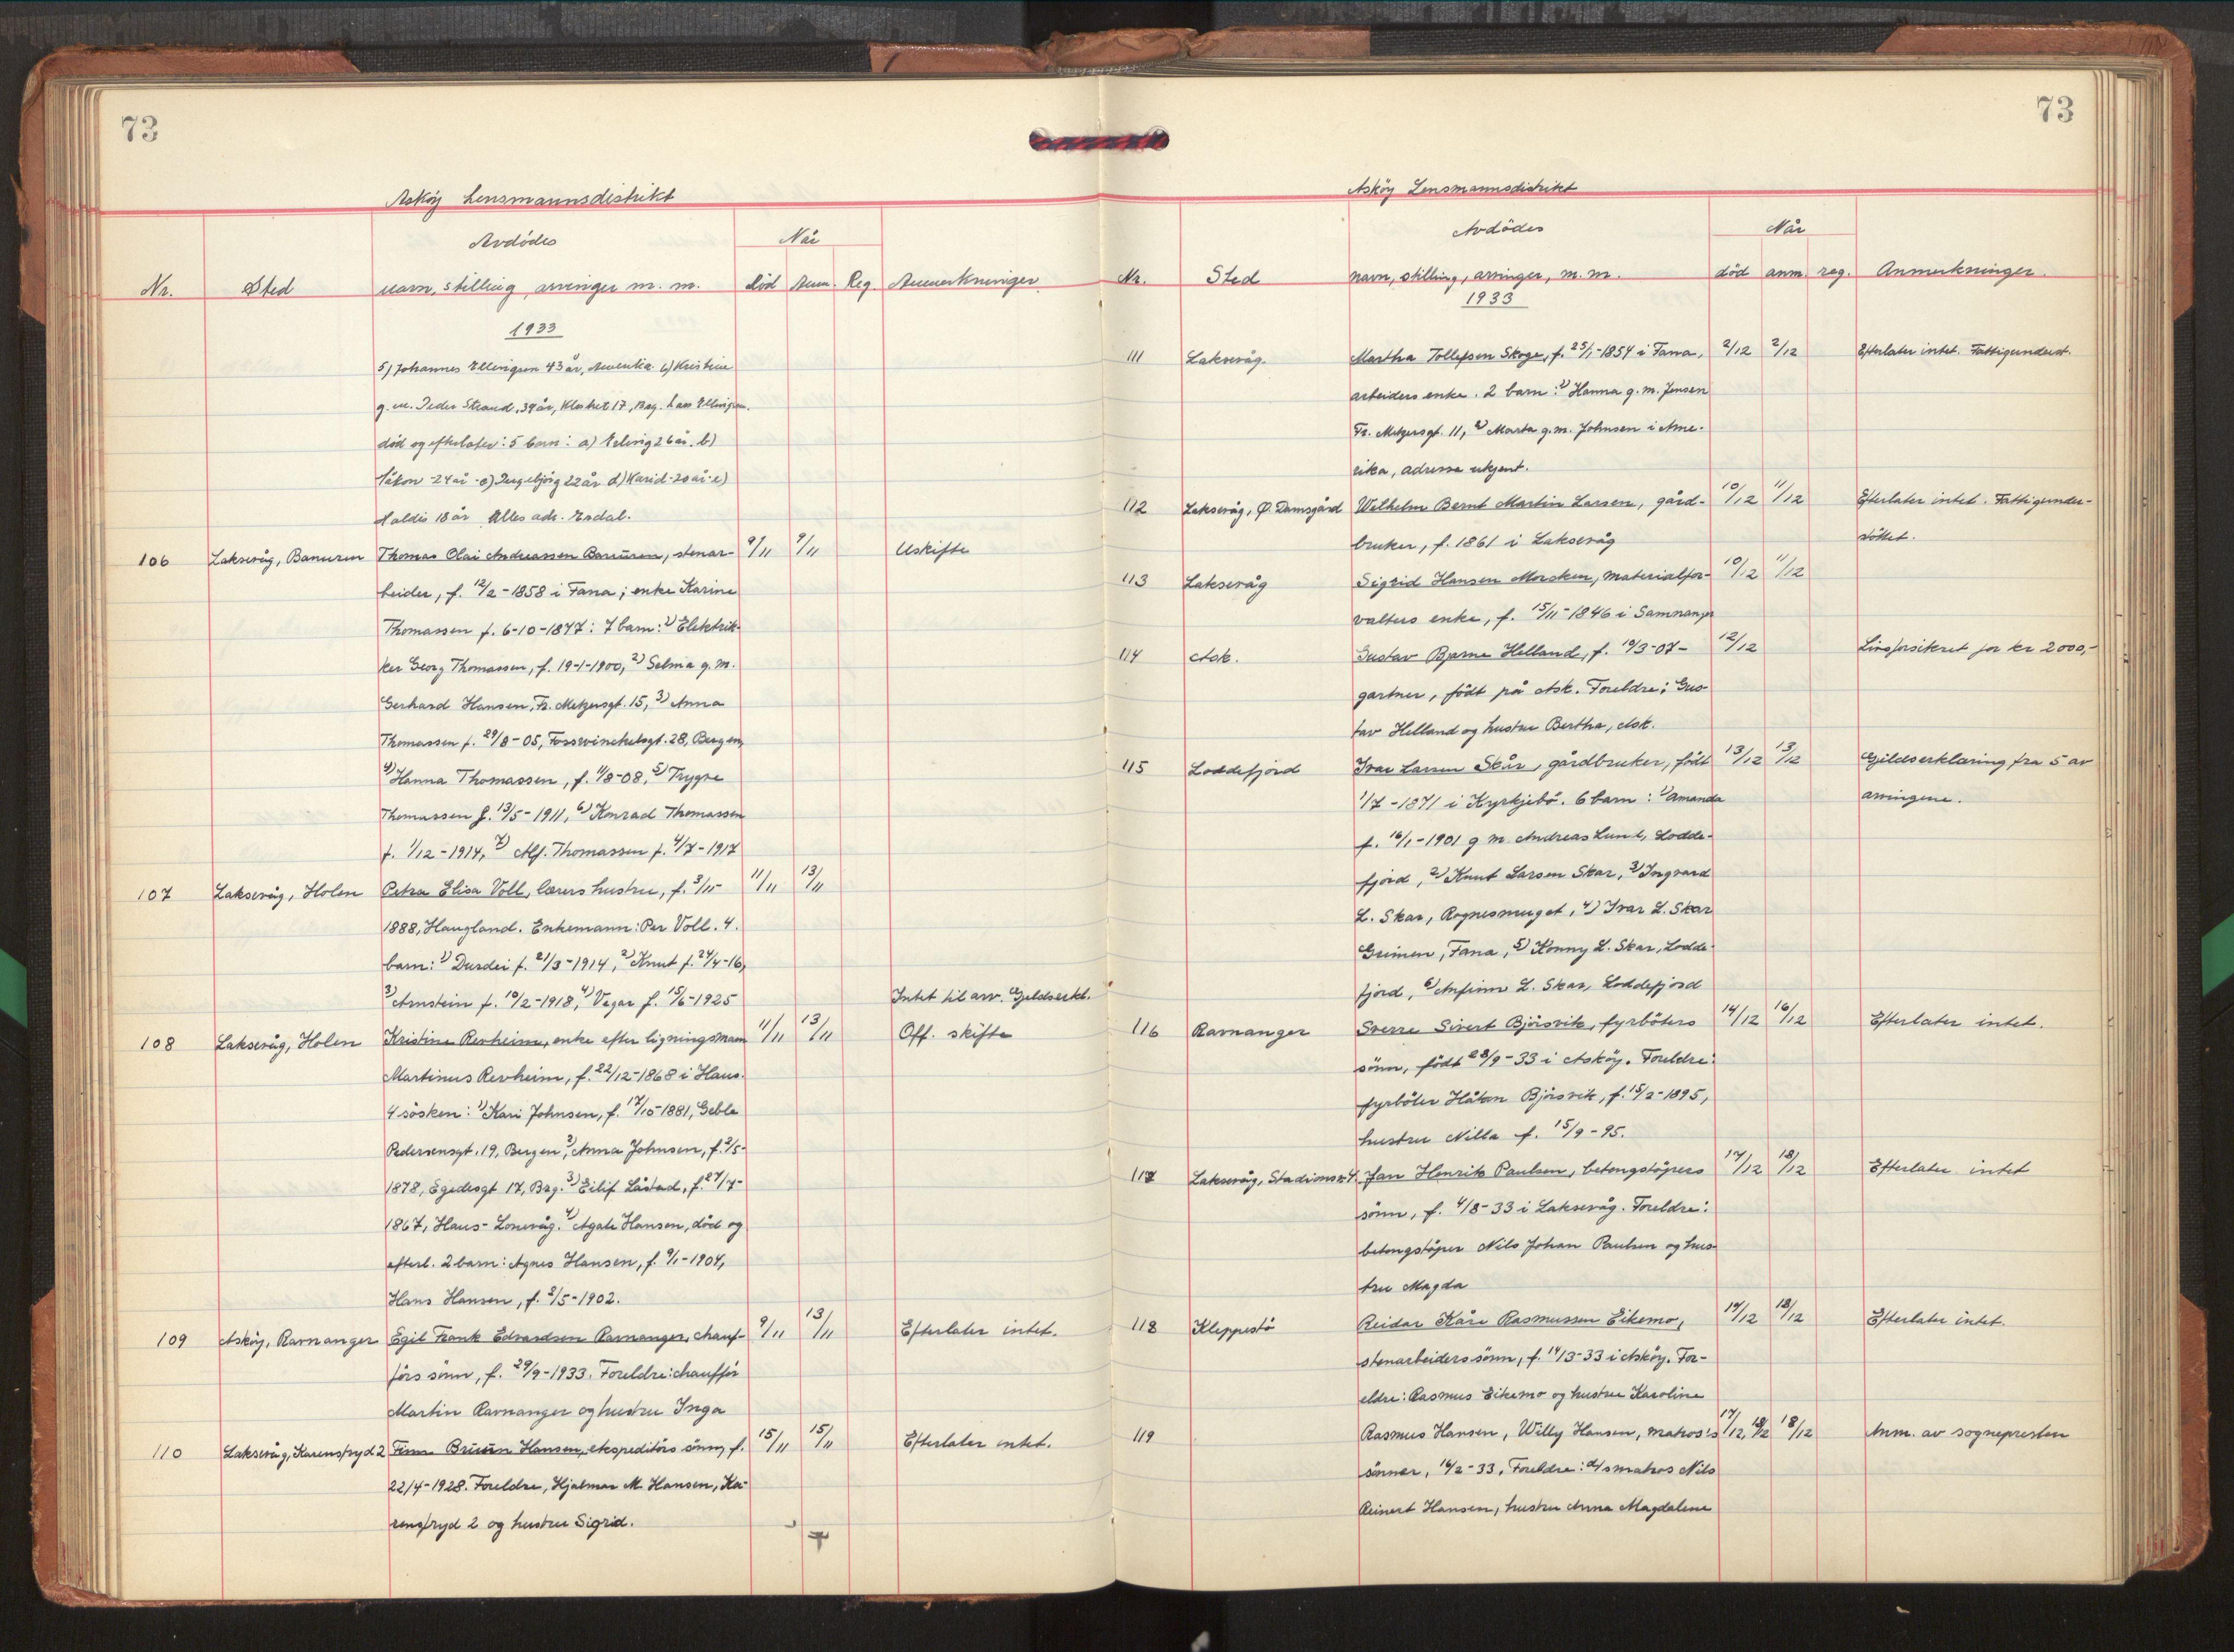 73
Askøy Lensmannsdistrikt
Avdødes
Når
Nr.
Sted
navn, stilling, arvinger m. m.
død
Anm.
Reg.
Anmerkninger
1933
5) Johannes Ellingsen 43 år, Amerika. 6) Kristine
g. m. Peder Strand, 34 år, Klostret 17, Brg.
død og efterlater: 5 barn: a) Erling 26 år. b)
Håkon 24 år - c) Ingebjørg 22 år d) Karid 20 år e)
Haldis 18 år Alles adr. Erdal.
106 Laksevåg, Banuren Thomas Olai Andreassen Banuren, stenar- 9/11 9/11 Uskifte
beider, f. 12/2-1858 i Fana; enke Karine
Thomassen f. 6-10-1877: 7 barn: 1) Elektrik-
ker Georg Thomassen, f. 19-1-1900, 2) Selma g. m.
Gerhard Hansen, Fr. Metzersgt. 15, 3) Anna
Thomassen f. 29/8-05, Fosswinckelsgt. 28, Bergen,
4) Hanna Thomassen, f. 4/8-08, 5) Trygve
Thomassen f. 13/5-1911, 6) Konrad Thomassen
f. 1/12-1914, 7) Alf. Thomassen f. 4/7-1917
107 Laksevåg, Holen Petra Elisa Voll, lærers hustru, f. 3/11- 11/11 13/11
1888, Haugland. Enkemann: Per Voll. 4.
barn: 1) Durdei f. 21/3-1914, 2) Knut f. 24/4-16,
3) Arnstein f. 10/2-1918, 4) Vegar f. 15/6-1925
Intet til arv. Gjeldserkl.
108 Laksevåg, Holen Kristine Revheim, enke efter ligningsmann 11/11 13/11 Off. skifte
Martinus Revheim, f. 22/12-1868 i Haus.
4 søsken: 1) Kari Johnsen, f. 17/10-1881, Geble
Pedersensgt. 19, Bergen, 2) Anna Johnsen, f. 2/5-
1878, Egedesgt 17, Brg. 3) Eilif Låstad, f. 27/7-
1867, Haus- Lonevåg. 4) Agate Hansen, død og
efterl. 2 barn: Agnes Hansen, f. 9/1-1904,
Hans Hansen, f. 2/5-1902.
109 Askøy, Ravnanger Egil Frank Edvardsen Ravnanger, chauf- 9/11 13/11 Efterlater intet.
førs sønn, f. 29/9-1933. Foreldre: chauffør
Martin Ravnanger og hustru Inga
110 Laksevåg, Karensfryd 2 Finn Bruun Hansen, ekspeditørs sønn, f. 15/11 15/11 Efterlater intet.
22/4-1928. Foreldre, Hjalmar M. Hansen, Ka-
rensfryd 2 og hustru Sigrid.
73
Askøy Lensmannsdistrikt
Avdødes
Når
Nr.
Sted
navn, stilling, arvinger, m. m.
død
anm.
reg.
Anmerkninger
1933
111 Laksevåg. Martha Tollefsen Skoge, f. 25/1-1854 i Fana, 2/12 2/12 Efterlater intet. Fattigunderst.
arbeiders enke. 2 barn: 1) Hanna g. m. Jensen
Fr. Metzersgt. 11, 2) Marta g. m. Johnsen i Ame-
rika, adresse ukjent.
112 Laksevåg, Ø. Damsgård Wilhelm Bernt Martin Larsen, gård- 10/12 11/12 Efterlater intet. Fattigunder-
bruker, f. 1861 i Laksevåg støttet.
113 Laksevåg Sigrid Hansen Morsken, materialfor- 10/12 11/12
valters enke, f. 15/11-1846 i Samnanger
114 Ask. Gustav Bjarne Helland, f. 10/3-07- 12/12 Livsforsikret for kr 2000,-
gartner, født på Ask. Foreldre: Gus-
tav Helland og hustru Bertha, Ask.
115 Loddefjord Ivar Larsen Skår, gårdbruker, født 13/12 13/12 Gjeldserklæring fra 5 av
1/7-1871 i Kyrkjebø. 6 barn: 1) Amanda arvingene.
f. 16/1-1901 g m. Andreas Lund, Lodde-
fjord, 2) Knut Larsen Skar, 3) Ingvard
L. Skar, Rognesmuget, 4) Ivar L. Skar
Grimen, Fana, 5) Konny L. Skar, Lodde-
fjord, 6) Anfinn L. Skar, Loddefjord
116 Ravnanger Sverre Sivert Bjørsvik, fyrbøters 14/12 16/12 Efterlater intet.
sønn, født 28/9-33 i Askøy. Foreldre:
fyrbøter Håkon Bjørsvik, f. 15/2-1895,
hustru Nilla f. 15/9-95.
117 Laksevåg, Stadionsv. Jan Henrik Paulsen, betongstøpers 14/12 18/12 Efterlater intet
sønn, f. 4/8-33 i Laksevåg. Foreldre:
betongstøper Nils Johan Paulsen og hus-
tru Magda
118 Kleppestø Reidar Kåre Rasmussen Eikemo, 14/12 18/12 Efterlater intet.
stenarbeiders sønn, f. 14/3-33 i Askøy. For-
eldre: Rasmus Eikemo og hustru Karoline
119 Rasmus Hansen, Willy Hansen, matros's 17/12, 18/12 18/12 Anm. av sognepresten
sønner, 16/12-33. Foreldre: matros Nils
Reinert Hansen, hustru Anna Magdalene